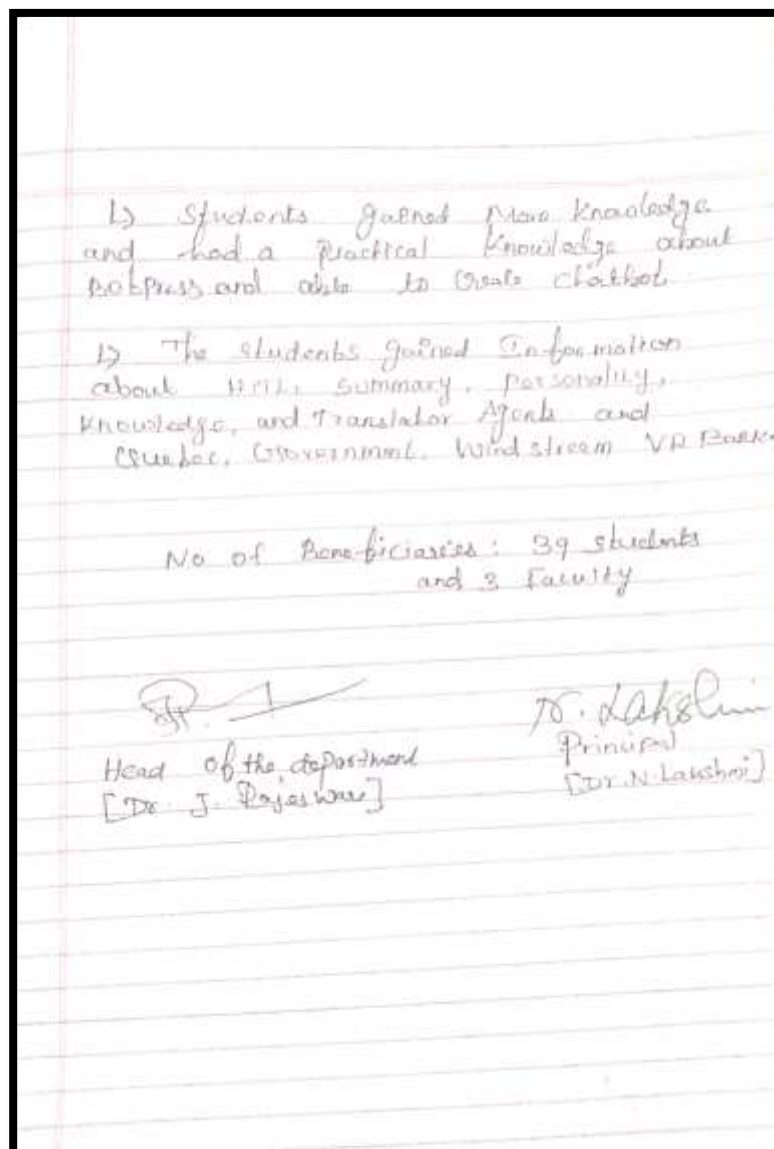 1) Students gained More knowledge
and had a Practical Knowledge about
BotPress and able to Create Chatbot
1) The students gained Information
about HITL, Summary, Personality,
Knowledge, and Translator Agents and
Quebec, Government, Windstream VR Bank
No of Beneficiaries: 39 students
and 3 Faculty
N. Lakshmi
Head of the department
Principal
[Dr J. Rajeswari]
[Dr. N. Lakshmi]